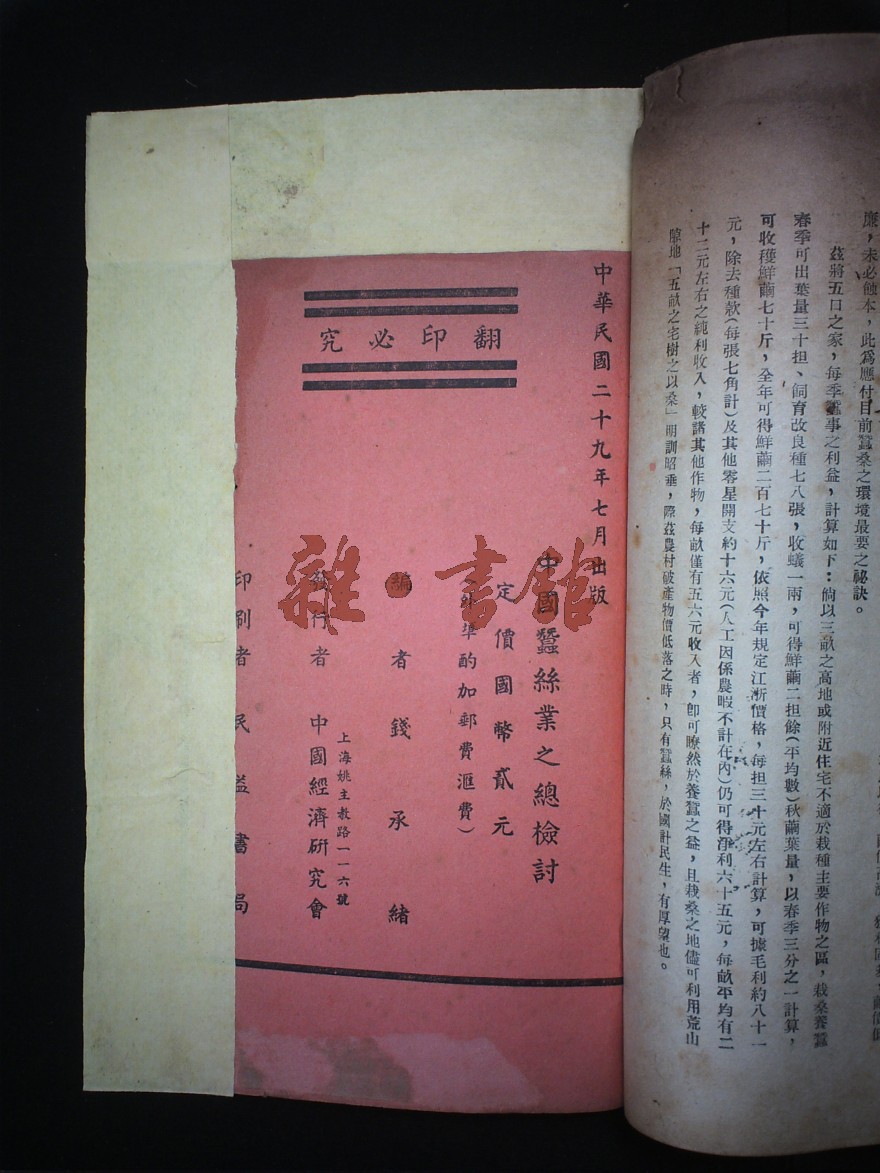 廉，未必蝕本，此爲應付目前蠶桑之環境最要之祕訣。
茲將五口之家，每季蠶事之利益，計算如下：倘以三畝之高地或附近住宅不適於栽種主要作物之區，栽桑養蠶
春季可出葉量三十担、飼育改良種七八張，收蟻一兩，可得鮮繭二担餘（平均數）秋繭葉量，以春季三分之一計算，
可收穫鮮繭七十斤，全年可得鮮繭二百七十斤，依照今年規定江浙價格，每担三十元左右計算，可據毛利約八十一
元，除去種款（每張七角計）及其他零星開支約十六元（人工因係農暇不計在內）仍可得淨利六十五元，每畝平均有二
十二元左右之純利收入，較諸其他作物，每畝僅有五六元收入者，卽可瞭然於養蠶之益，且栽桑之地儘可利用荒山
地「五畝之宅樹之以桑」明訓昭垂，際茲農村破產物價低落之時，只有蠶絲，於國計民生，有厚望也。
中華民國二十九年七月出版
翻印必究
中國蠶絲業之總檢討
定價國幣貳元
（外埠酌加郵費滙費）
編者錢承緒
上海姚主教路一一六號
發行者 中國經濟研究會
印刷者 民益書局
雜·書館